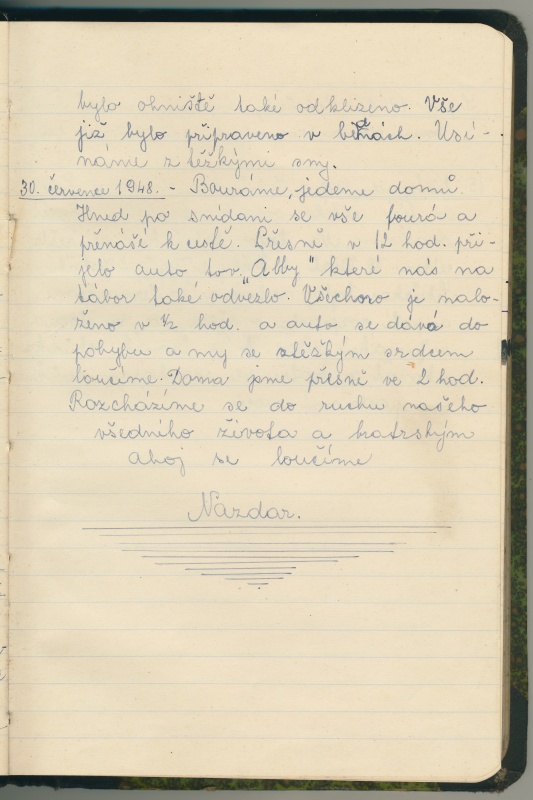 bylo ohniště také odklizeno. Vše
již bylo připraveno v bednách. Usí-
náme z těžkými sny.
30. července 1948. - Bouráme, jedeme domů.
Hned po snídani se vše bourá a
přenáší k cestě. Přesně v 12 hod. při-
jelo auto tov. "Abby" které nás na
tábor také odvezlo. Všechoro je nalo-
ženo v ½ hod. a auto se dává do
pohybu a my se ztěžkým srdcem
loučíme. Doma jsme přesně ve 2 hod.
Rozcházíme se do ruchu našeho
všedního života a bratrským
ahoj se loučíme
Nazdar.